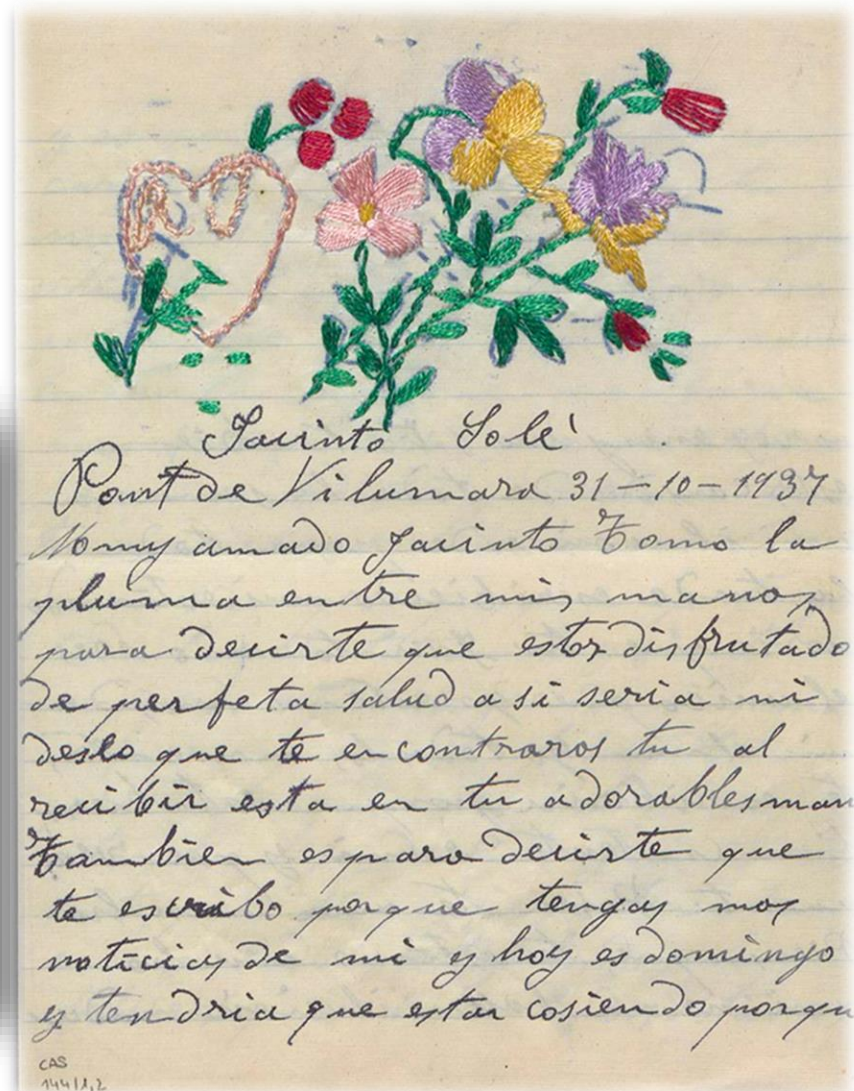 Jacinto Solé
Pont de Vilumara 31-10-1937
Muy amado Jacinto Tomo la
pluma entre mis manos
para decirte que estoy disfrutado
de perfeta salud asi seria mi
deseo que te encontraras tu al
recibir esta en tu adorables man
Tambien es para decirte que
te escribo porque tengas mas
noticias de mi y hoy es domingo
y tendria que estar cosiendo porqu
CAS
144/1,2